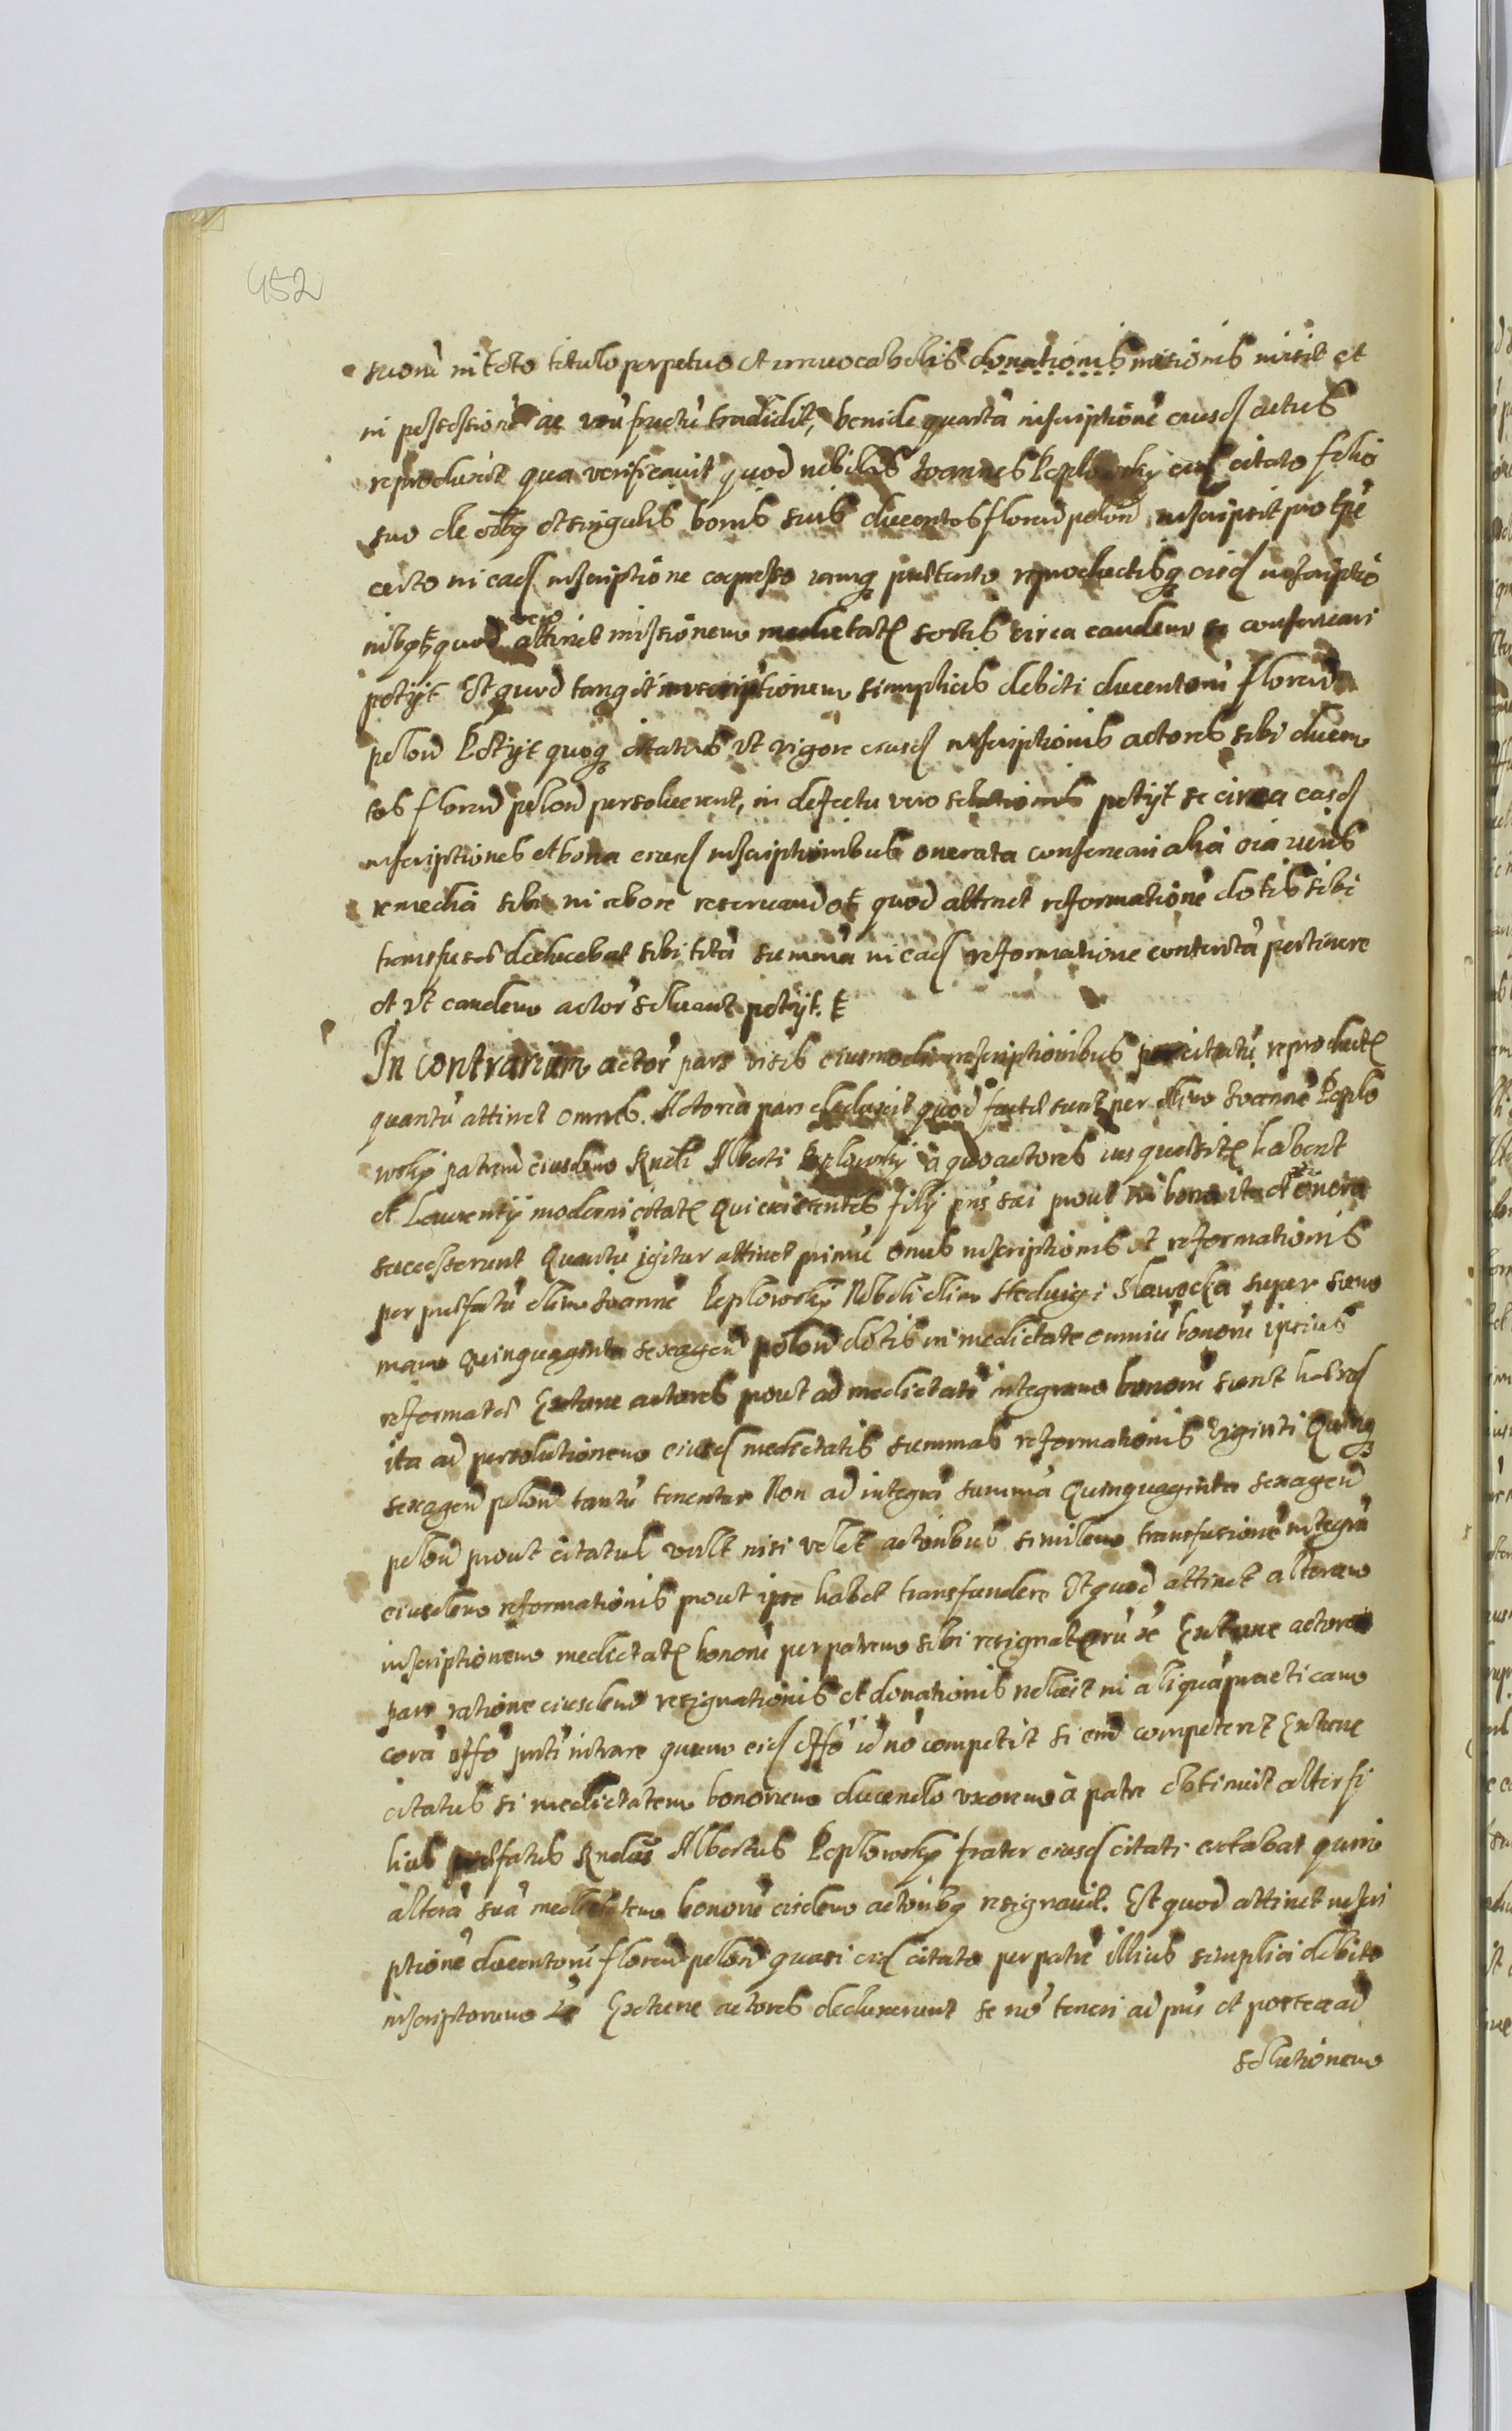 452
suorũ in toto titulo perpetuo et irreuocabilis donationis missionis misit et
in possessionẽ ac vsũfructũ tradidit, benide quartã inscriptionẽ eiusd actus
reproduxit qua verificauit quod nobilis Joannes Peplowsky eid citato filio
suo de oĩbq et singulis bonis suis ducentos florend polond inscripsit pro tpẽ
certo in ead inscriptione expresso iamq reproductisq eisd inscriptio
nibq Et quod vero attinet missionem medietatẹ sortis circa eandem se conseruari
petijt Et quod tangit inscriptionem simplicis debiti ducentorũ florend
polond Petijt quoq citatus vt vigore eiusd inscriptionis actores sibi ducen
tos florend polond persoluerent, in defectu vero solutionis petijt se circa easd
inscriptiones et bona eiusd inscriptionibus onerata conseruari alia oĩa iuris
remedia sibi in robore reseruando Et quod attinet reformationẽ dotis sibi
transfusae deducebat sibi totã summã in ead reformatione contentã pertinere
et vt eandem actor soluant petijt. Et
In contrarium actor pars visis eiusmodi inscriptionibus per citatũ reproductẹ
quantũ attinet omnes. Actorea pars deduxit quod factae sunt per olim Joannẽ Peplo
wsky patrem eiusdem Rndi Alberti Peplowsky à quo actores ius quaesitẹ habent
et Laurentij moderni citatẹ Qui existentes filij pris sui prout in bona ita et in onera
successerunt Quantũ igitur attinet primũ onus inscriptionis vt reformationis
per praefatũ olim Joannẽ Peplowsky Nobili olim Heduigi Slawocka super sum
mam Quinquaginta sexagend polond dotis in medietate omniũ bonorũ ipsius
reformatae Extunc actores prout ad medietatẽ integram bonorũ sunt haered
ita ad persolutionem eiusd medietatis summas reformationis Viginti Quinq
sexagend polond tantũ tenentur Non ad integrã summã Quinquaginta sexagend
polond prout citatus vult nisi velit actoribus similem transfusionẽ integrã
eiusdem reformationis prout ipse habet transfundere Et quod attinet alteram
inscriptionem medietatẹ bonorũ per patrem sibi resignatorũ etc Extunc actorea
pars ratione eiusdem resignationis et donationis noluit in aliquã practicam
corã offõ pñti intrare quem eid offõ id nõ competit si enĩ competeret Extunc
citatus si medietatem bonorum ducendo vxorem à patre obtinuit alter fi
lius praefatus Rndus Albertus Peplowsky frater eiusd citati extabat quinio
alterã suã medietatem bonorũ eisdem actoribq resignauit. Et quod attinet inscri
ptionẽ ducentorũ florend polond quasi eid citato per patrẽ illius simplici debito
inscriptorum etc Extunc actores deduxerunt se nõ teneri ad pris et postea ad
solutionem